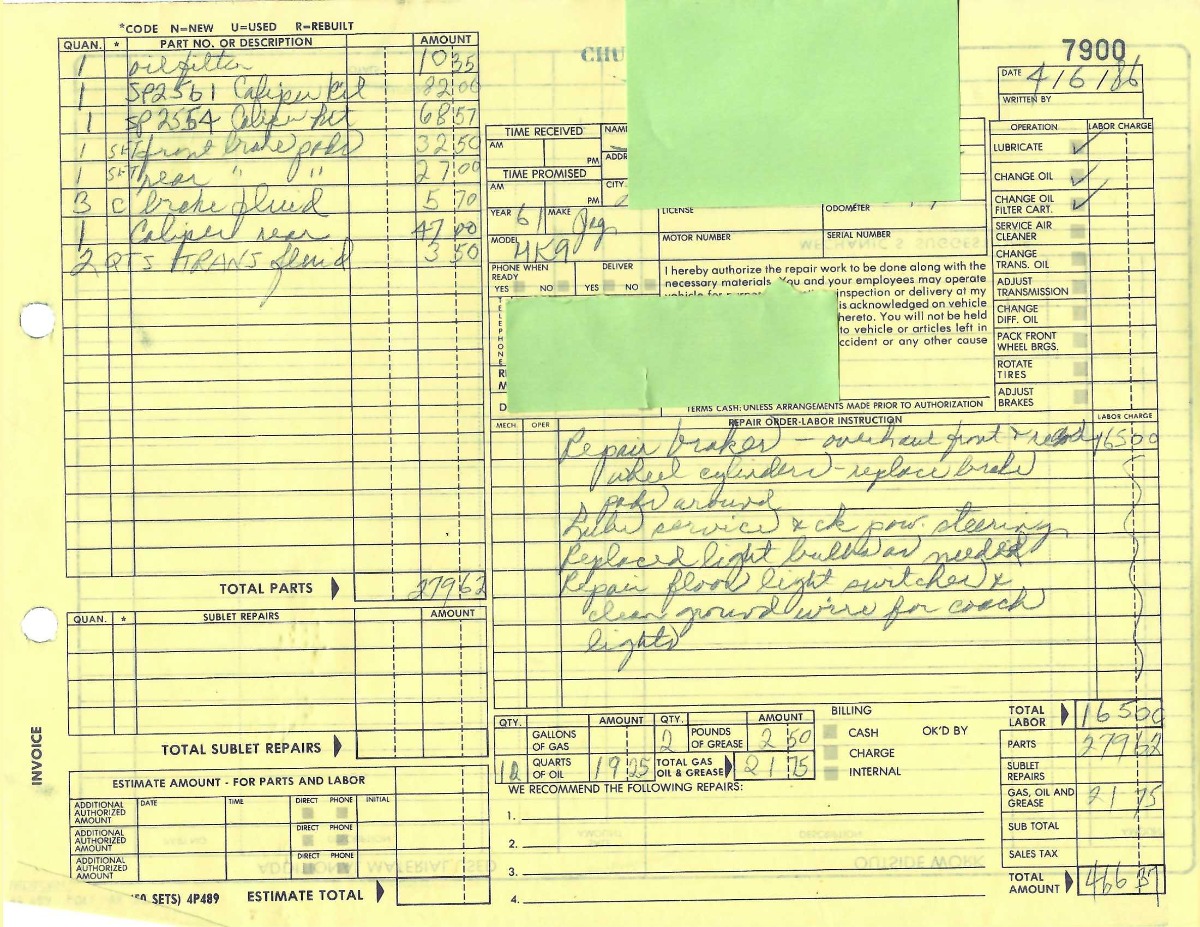 *CODE N=NEW U=USED R=REBUILT
QUAN. * PART NO. OR DESCRIPTION AMOUNT
1 oil filter 10 35
1 SP2561 Caliper Kit 82 00
1 SP2554 Caliper Kit 68 57
1 SET front brake pads 32 50
1 SET rear " " 27 00
3 C brake fluid 5 70
1 Caliper rear 47 00
2 QTS TRANS fluid 3 50
TOTAL PARTS 279 62
QUAN. * SUBLET REPAIRS AMOUNT
TOTAL SUBLET REPAIRS
INVOICE
ESTIMATE AMOUNT - FOR PARTS AND LABOR
ADDITIONAL AUTHORIZED AMOUNT DATE TIME DIRECT PHONE INITIAL
ADDITIONAL AUTHORIZED AMOUNT DIRECT PHONE
ADDITIONAL AUTHORIZED AMOUNT DIRECT PHONE
SETS) 4P489 ESTIMATE TOTAL
CHU
7900
DATE 4/6/86
WRITTEN BY
TIME RECEIVED
AM PM
TIME PROMISED
AM PM
ADDR
CITY
YEAR 61 MAKE Jag
LICENSE ODOMETER
MODEL MK9
MOTOR NUMBER SERIAL NUMBER
PHONE WHEN READY YES NO
DELIVER YES NO
TELEPHONE
I hereby authorize the repair work to be done along with the
necessary materials. You and your employees may operate
vehicle for inspection or delivery at my
is acknowledged on vehicle
hereto. You will not be held
to vehicle or articles left in
accident or any other cause
TERMS CASH: UNLESS ARRANGEMENTS MADE PRIOR TO AUTHORIZATION
OPERATION LABOR CHARGE
LUBRICATE ✓
CHANGE OIL ✓
CHANGE OIL FILTER CART. ✓
SERVICE AIR CLEANER
CHANGE TRANS. OIL
ADJUST TRANSMISSION
CHANGE DIFF. OIL
PACK FRONT WHEEL BRGS.
ROTATE TIRES
ADJUST BRAKES
MECH. OPER REPAIR ORDER-LABOR INSTRUCTION LABOR CHARGE
Repair brakes - overhaul front & rear 165 00
wheel cylinders - replace brake
pads around
Lube service & ck pow. steering
Replaced light bulbs as needed
Repair floor light switches &
clean ground wire for coach
lights
QTY. AMOUNT QTY. AMOUNT
GALLONS OF GAS 2 POUNDS OF GREASE 2 50
12 QUARTS OF OIL 19 25 TOTAL GAS OIL & GREASE 21 75
BILLING
CASH OK'D BY
CHARGE
INTERNAL
WE RECOMMEND THE FOLLOWING REPAIRS:
1.
2.
3.
4.
TOTAL LABOR 165 00
PARTS 279 62
SUBLET REPAIRS
GAS, OIL AND GREASE 21 75
SUB TOTAL
SALES TAX
TOTAL AMOUNT 466 37